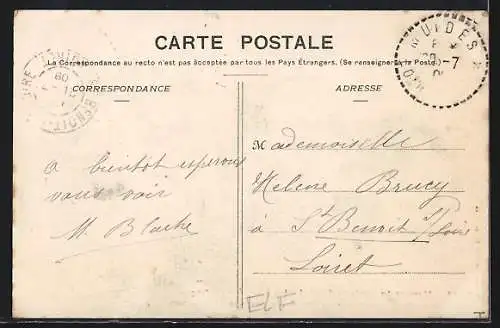 CARTE POSTALE
La Correspondance au recto n'est pas acceptée par tous les Pays Étrangers. (Se renseigner à la Poste)
CORRESPONDANCE
ADRESSE
MUIDES
A bientot esperons
vous voir
M. Blache
Mademoiselle
Helene Brucy
à St Benoit s/ Loire
Loiret
ELF